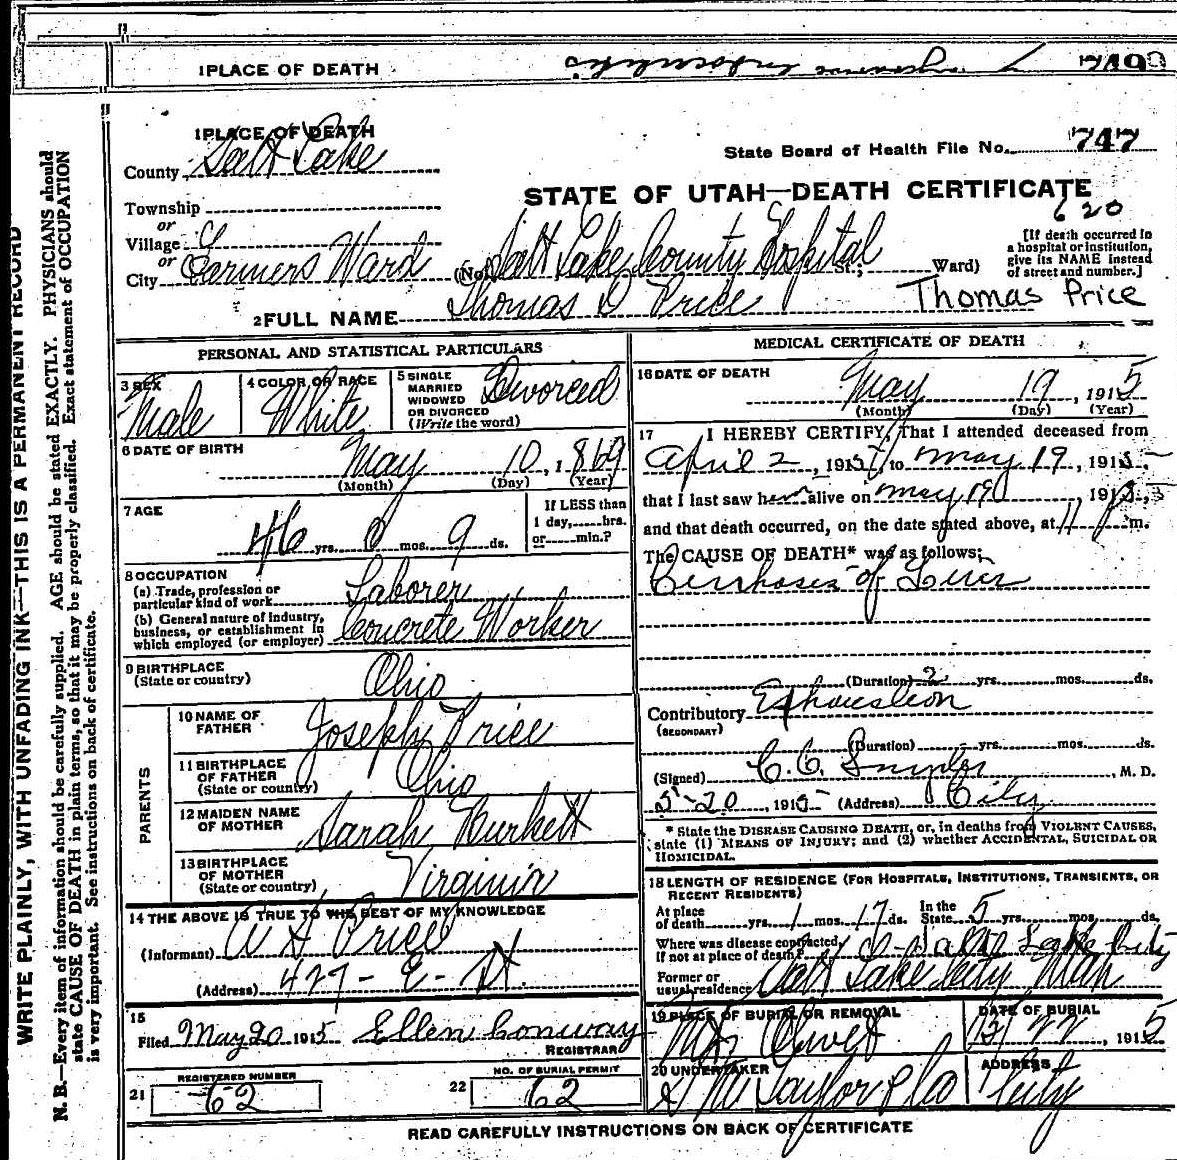 1 PLACE OF DEATH
7490
1 PLACE OF DEATH
County Salt Lake
State Board of Health File No. 747
STATE OF UTAH—DEATH CERTIFICATE
620
Township
or
Village
or
City Farmers Ward (No. Salt Lake County Hospital St.; Ward)
[If death occurred in a hospital or institution, give its NAME instead of street and number.]
2 FULL NAME Thomas D Price
Thomas Price
PERSONAL AND STATISTICAL PARTICULARS
3 SEX Male
4 COLOR OR RACE White
5 SINGLE MARRIED WIDOWED OR DIVORCED (Write the word) Divorced
6 DATE OF BIRTH May 10, 1869
(Month) (Day) (Year)
7 AGE 46 yrs. 0 mos. 9 ds.
If LESS than 1 day, hrs. or min.?
8 OCCUPATION
(a) Trade, profession or particular kind of work Laborer
(b) General nature of industry, business, or establishment in which employed (or employer) Concrete Worker
9 BIRTHPLACE (State or country) Ohio
PARENTS
10 NAME OF FATHER Joseph Price
11 BIRTHPLACE OF FATHER (State or country) Ohio
12 MAIDEN NAME OF MOTHER Sarah Burkett
13 BIRTHPLACE OF MOTHER (State or country) Virginia
14 THE ABOVE IS TRUE TO THE BEST OF MY KNOWLEDGE
(Informant) W H Price
(Address) 427 - E - St.
15
Filed May 20 1915 Ellen Conway
REGISTRAR
21 REGISTERED NUMBER 62
22 NO. OF BURIAL PERMIT 62
MEDICAL CERTIFICATE OF DEATH
16 DATE OF DEATH May 19, 1915
(Month) (Day) (Year)
17 I HEREBY CERTIFY, That I attended deceased from
April 2, 1915, to May 19, 1915
that I last saw him alive on May 19, 1915,
and that death occurred, on the date stated above, at 11 P m.
The CAUSE OF DEATH* was as follows:
Cirrhoses of Liver
(Duration) 2 yrs. mos. ds.
Contributory Exhaustion
(SECONDARY)
(Duration) yrs. mos. ds.
(Signed) C. C. Snyder, M. D.
5-20, 1915 (Address) City
* State the DISEASE CAUSING DEATH, or, in deaths from VIOLENT CAUSES, state (1) MEANS OF INJURY; and (2) whether ACCIDENTAL, SUICIDAL OR HOMICIDAL.
18 LENGTH OF RESIDENCE (FOR HOSPITALS, INSTITUTIONS, TRANSIENTS, OR RECENT RESIDENTS)
At place of death yrs. 1 mos. 17 ds. In the State 5 yrs. mos. ds.
Where was disease contracted, if not at place of death? Salt Lake City
Former or usual residence Salt Lake City Utah
19 PLACE OF BURIAL OR REMOVAL Mt. Olivet
DATE OF BURIAL 22, 1915
20 UNDERTAKER S M Taylor & Co
ADDRESS City
READ CAREFULLY INSTRUCTIONS ON BACK OF CERTIFICATE
WRITE PLAINLY, WITH UNFADING INK—THIS IS A PERMANENT RECORD
N. B.—Every item of information should be carefully supplied. AGE should be stated EXACTLY. PHYSICIANS should
state CAUSE OF DEATH in plain terms, so that it may be properly classified. Exact statement of OCCUPATION
is very important. See instructions on back of certificate.